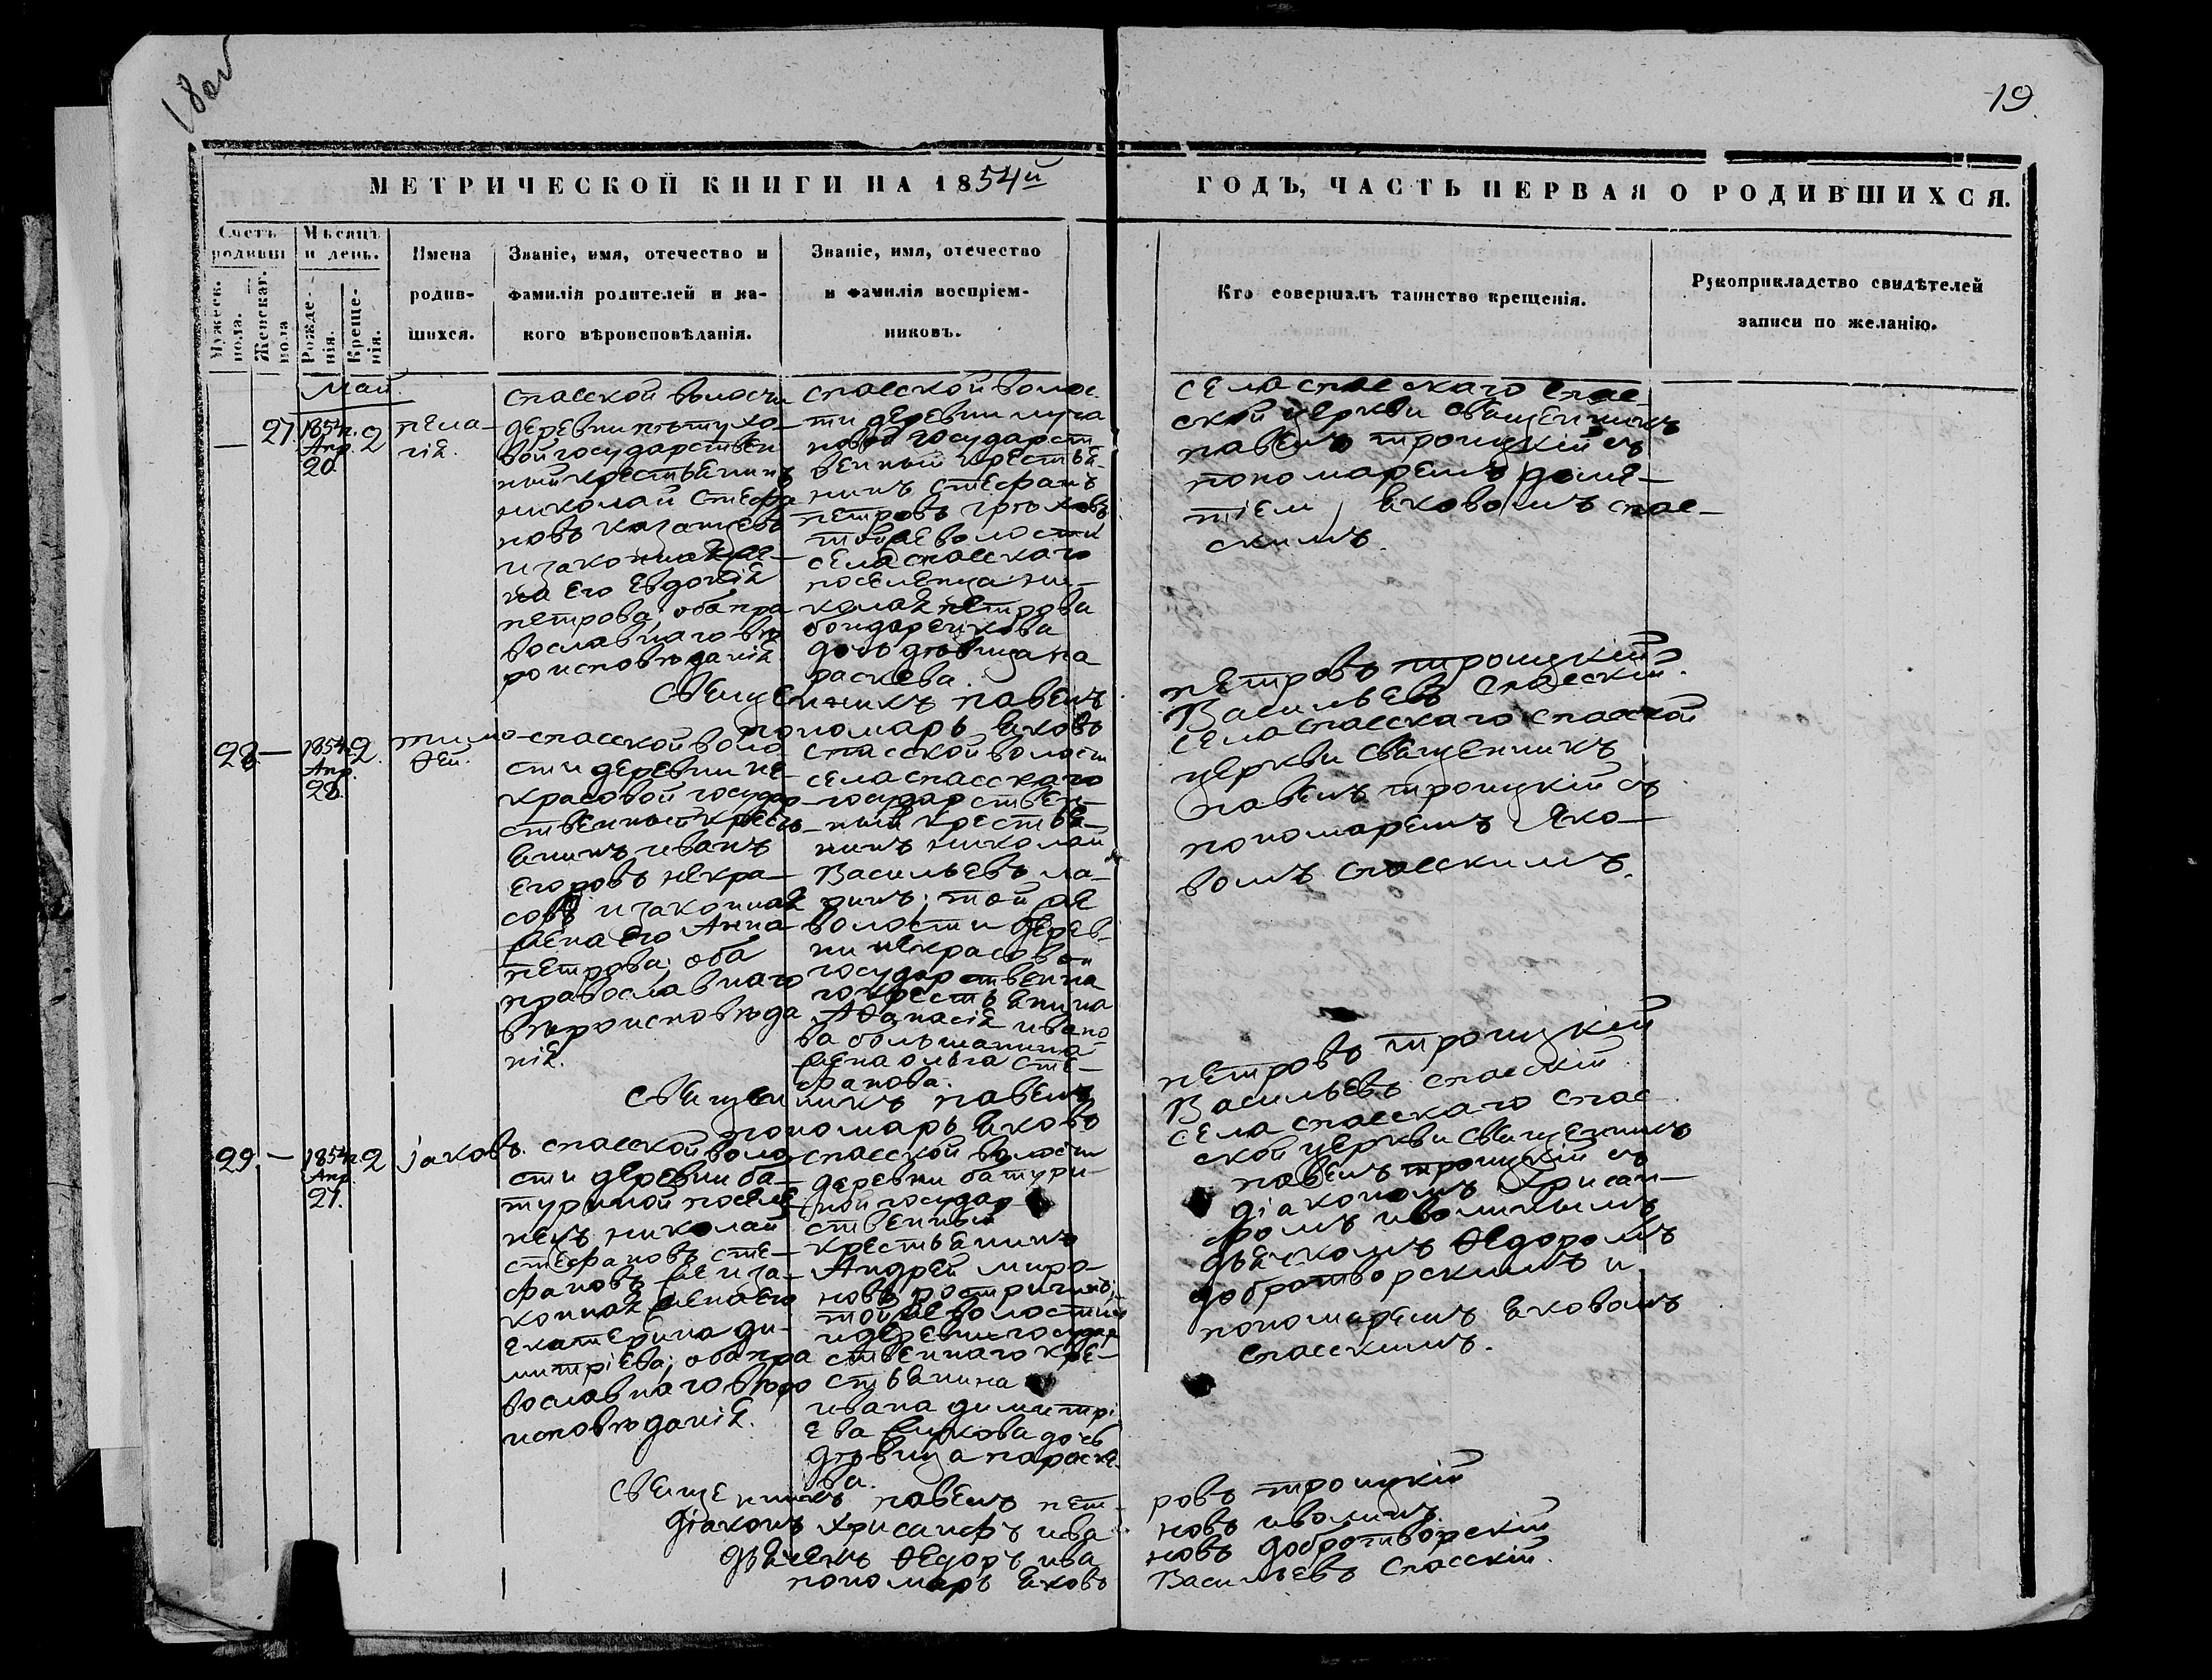 18 об
19.
МЕТРИЧЕСКОЙ КНИГИ НА 1854й
ГОДЪ, ЧАСТЬ ПЕРВАЯ О РОДИВШИХСЯ.
Счетъ родивш
Мужеск. пола.
Женскаг. пола
Мѣсяцъ и день.
Рожде-нія.
Креще-нія.
Имена
родив-
шихся.
Званіе, имя, отечество и
фамилія родителей и ка-
кого вѣроисповѣданія.
Званіе, имя, отечество
и фамилія воспріем-
никовъ.
Кто совершалъ таинство крещенія.
Рукоприкладство свидѣтелей
записи по желанію.
Май.
—
27.
1854 г.
Апр.
20.
2
пела-
гія.
спасской волости
деревни пѣтухо-
вой государствен
ный крестьянинъ
николай стефа
новъ казанцевъ
и законная же-
на его евдокія
петрова; оба пра
вославнаго вѣ
роисповѣданія.
спасской волос
ти деревни
государст
венный крестья-
нинъ стефанъ
петровъ
той же волости
села спасскаго
поселенца ни-
колая петрова
бондаренкова
дочь дѣвица па
раскева.
села спасскаго спас-
ской церкви священникъ
павелъ троицкій съ
пономаремъ
яковомъ спас-
скимъ.
священникъ павелъ
петровъ троицкій.
пономарь яковъ
Васильевъ спасскій.
28.
—
1854 г.
Апр.
28.
2.
тимо-
ѳей.
спасской воло
сти деревни не-
красовой государ-
ственный кресть-
янинъ иванъ
егоровъ некра-
совъ и законная
жена его Анна
петрова; оба
православнаго
вѣроисповѣда
нія.
спасской волости
села спасскаго
государствен-
ный крестья-
нинъ николай
Васильевъ ла-
ринъ; той же
волости дерев-
ни некрасовой
государственна
го крестьянина
Аѳанасія ивано
ва большанина
жена ольга сте-
фанова.
села спасскаго спасской
церкви священникъ
павелъ троицкій съ
пономаремъ Яко-
вомъ спасскимъ.
священникъ павелъ
петровъ троицкій
пономарь яковъ
Васильевъ спасскій.
29.
—
1854 г.
Апр.
21.
2
іаковъ.
спасской воло
сти деревни ба-
туриной поселе
нецъ николай
стефановъ сте-
фановъ же и за-
конная жена его
екатерина ди-
митріева; оба пра
вославнаго вѣро
исповѣданія.
спасской волости
деревни батури-
ной государ
ственный
крестьянинъ
Андрей миро-
новъ
той же волости
и деревни государ
ственнаго кре-
стьянина
ивана димитрі
ева дочь
дѣвица параске
ва.
села спасскаго спас-
ской церкви священникъ
павелъ троицкій съ
діакономъ Хрисан-
фомъ иволинымъ
дьячкомъ Ѳедоромъ
добротворскимъ и
пономаремъ яковомъ
спасскимъ.
священникъ павелъ пет-
ровъ троицкій
діаконъ Хрисанфъ ива
новъ иволинъ.
дьячекъ Ѳедоръ ива
новъ добротворскій
пономарь яковъ
Васильевъ спасскій.